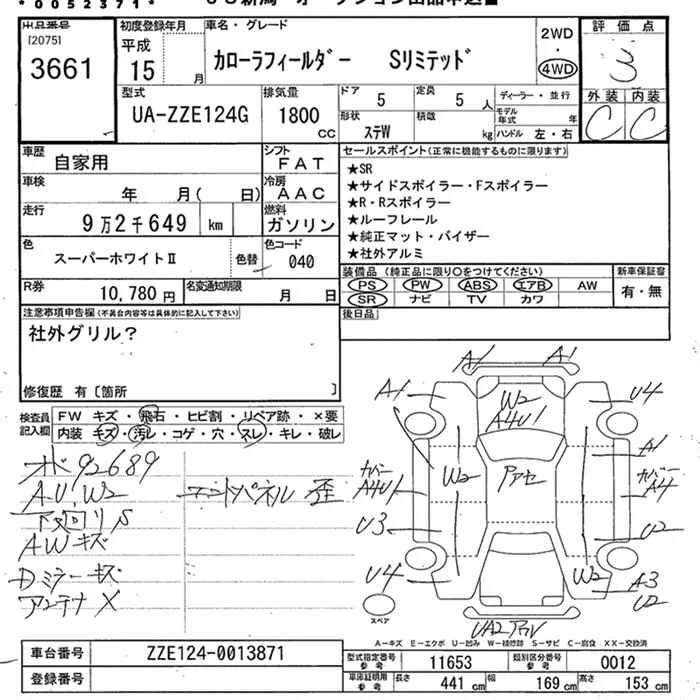 *0052371*
出品番号
[2075]
3661
初度登録年月
平成
15 月
車名・グレード
カローラフィールダー Sリミテッド
2WD
・
4WD
評価点
3
外装 内装
C C
型式
UA-ZZE124G
排気量
1800
CC
ドア
5
定員
5 人
形状
ステW
積載
kg
ディーラー・並行
モデル年式 年
ハンドル 左・右
車歴
自家用
シフト
FAT
車検
年 月( 日)
冷房
AAC
走行
9万2千649 km
燃料
ガソリン
色
スーパーホワイトⅡ
色替
色コード
040
R券
10,780 円
名変通知期限
月 日
セールスポイント(正常に機能するものに限ります)
★SR
★サイドスポイラー・Fスポイラー
★R・Rスポイラー
★ルーフレール
★純正マット・バイザー
★社外アルミ
装備品(純正品に限り○をつけてください)
PS PW ABS エアB AW
SR ナビ TV カワ
新車保証書
有・無
後日品
注意事項申告欄(不具合内容等は具体的に記入して下さい)
社外グリル?
修復歴 有〔箇所 〕
検査員
記入欄
FW キズ・飛石・ヒビ割・リペア跡・×要
内装 キズ・汚レ・コゲ・穴・スレ・キレ・破レ
オド92689
A・U、W2
下廻りS
AWキズ
Dミラーキズ
アンテナX
エンドパネル 歪
A1 A1
A1
W2
A4U1
U4
A1
カバー
A4U1
W2
アセ
カバー
A4
U3
U2
U4
W2
A3
U2
UA2
スペア
A-キズ E-エクボ U-凹み W-補修跡 S-サビ C-腐食 XX-交換済
車台番号
ZZE124-0013871
登録番号
型式指定番号
参考
11653
類別区分番号
参考
0012
車庫証明用
参考
長さ
441 cm
幅
169 cm
高さ
153 cm